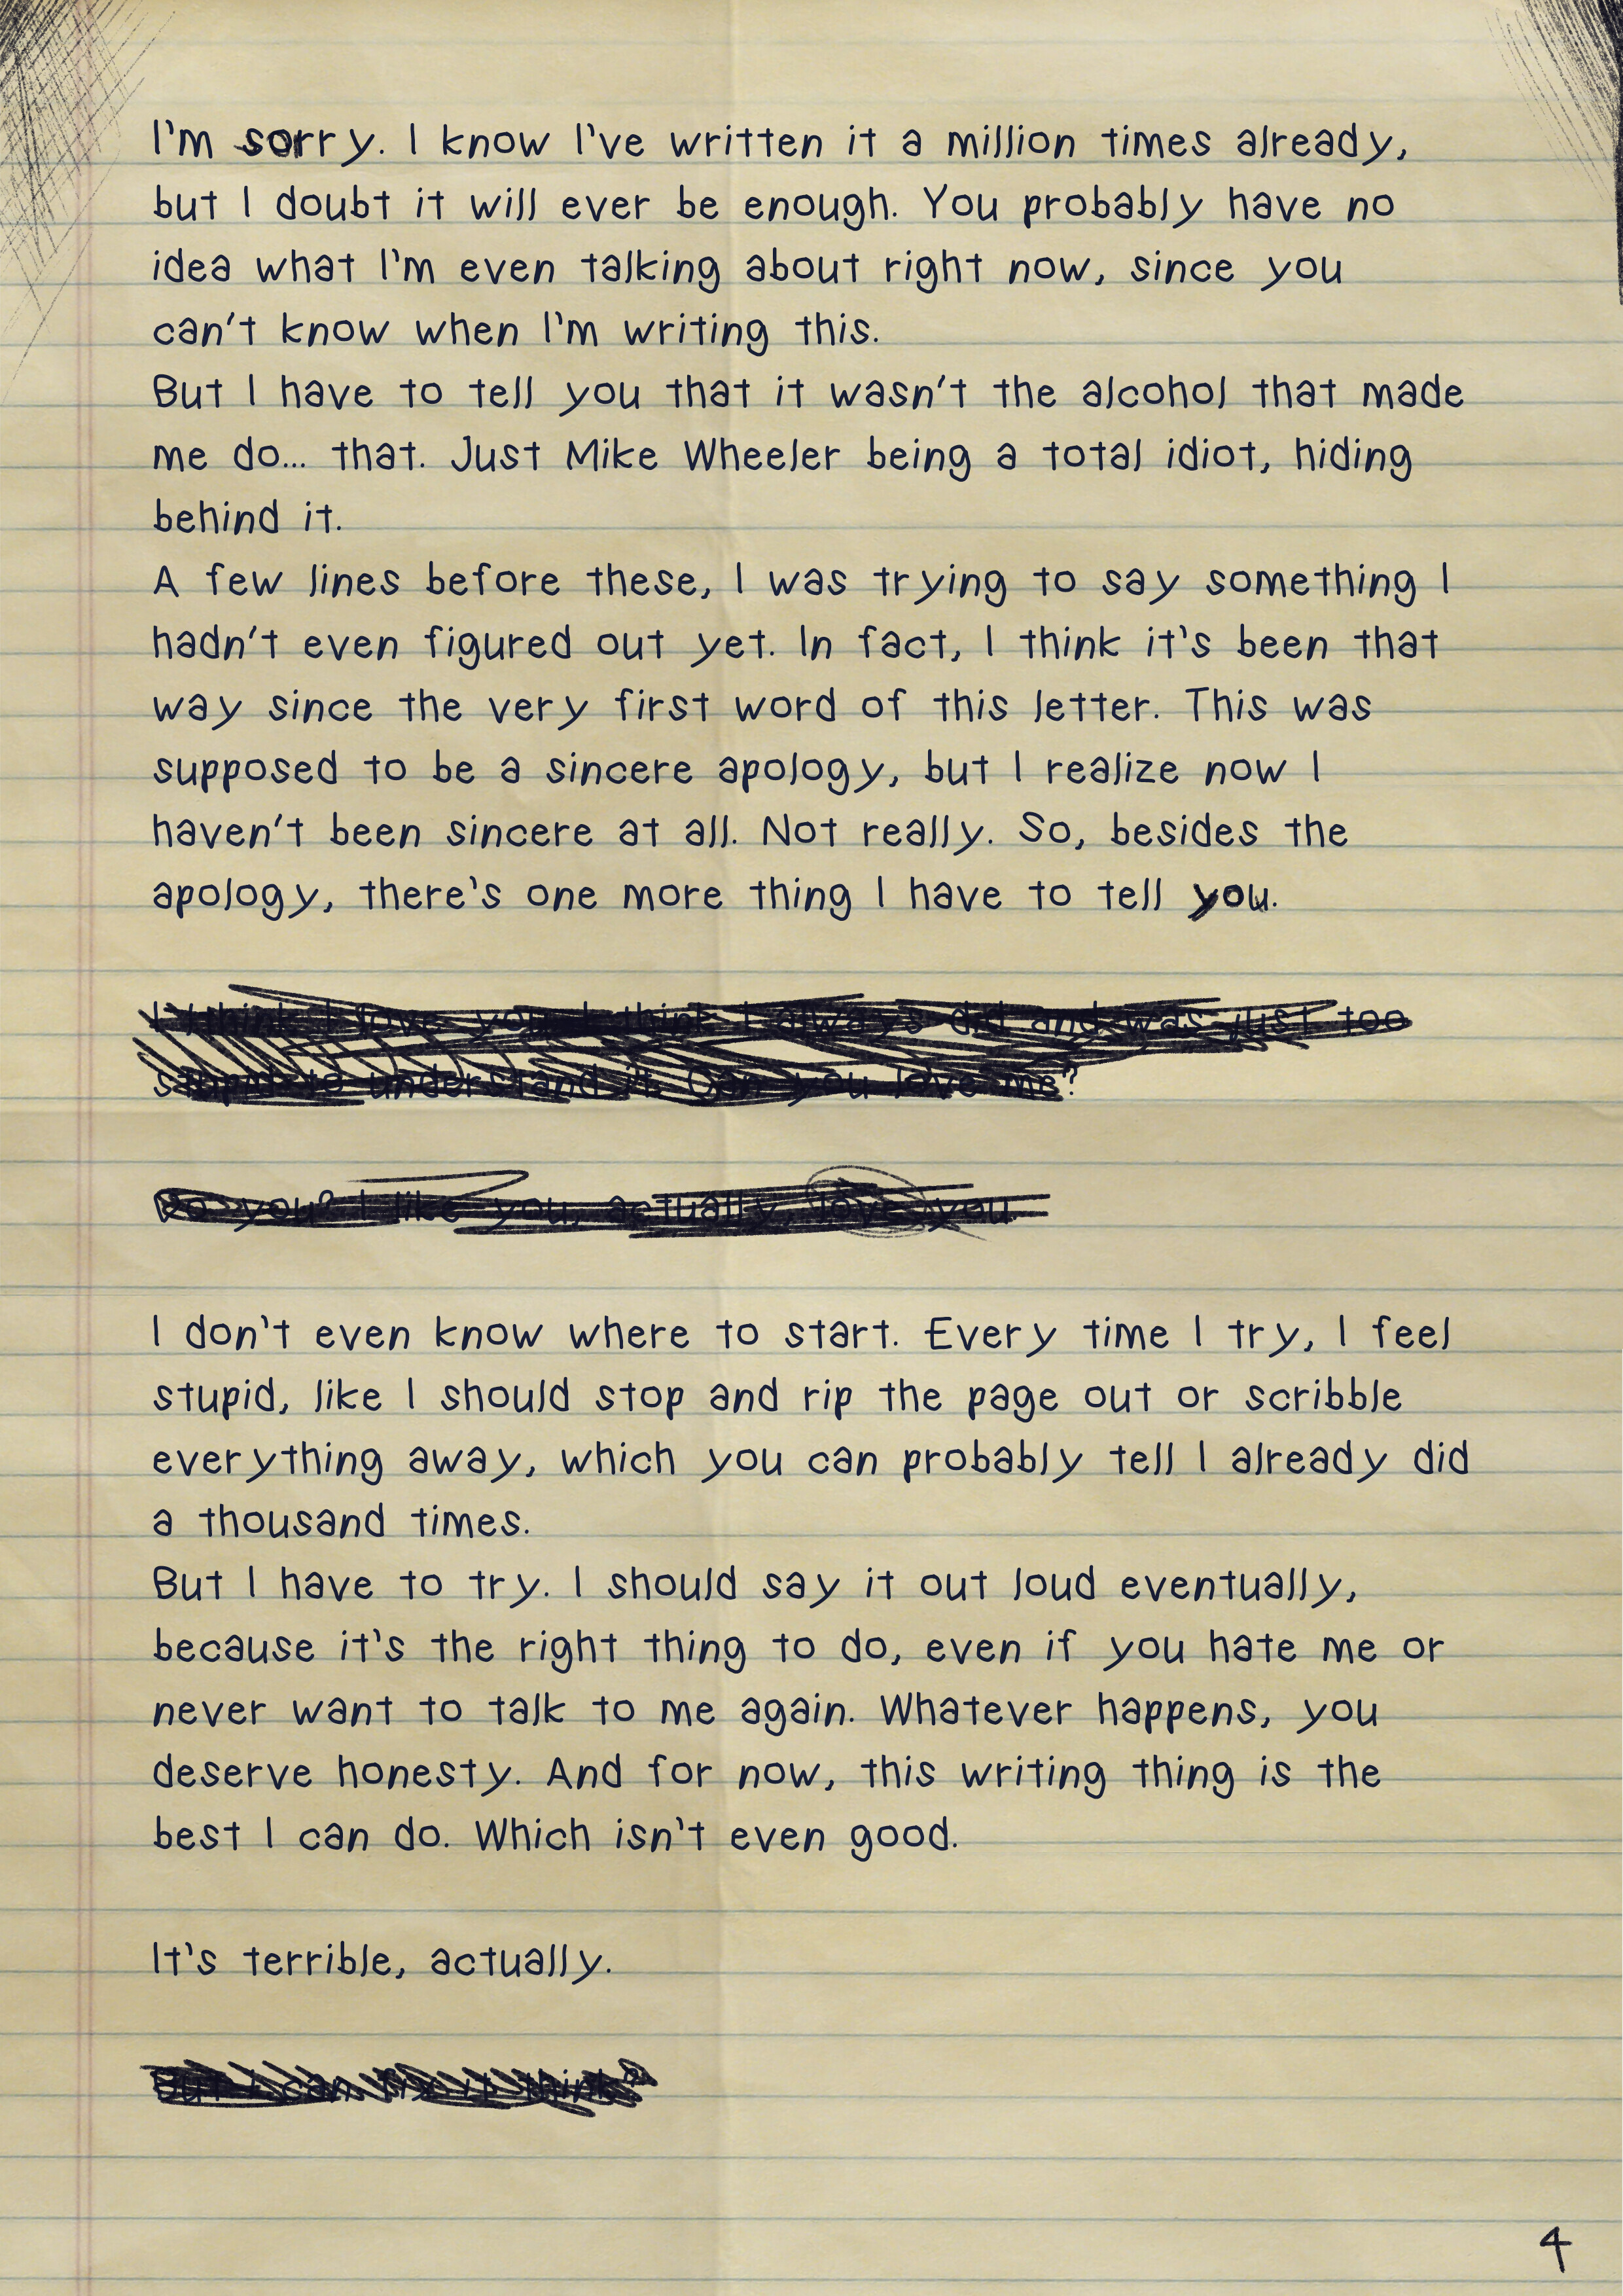 I'm sorry. I know I've written it a million times already,
but I doubt it will ever be enough. You probably have no
idea what I'm even talking about right now, since you
can't know when I'm writing this.
But I have to tell you that it wasn't the alcohol that made
me do... that. Just Mike Wheeler being a total idiot, hiding
behind it.
A few lines before these, I was trying to say something I
hadn't even figured out yet. In fact, I think it's been that
way since the very first word of this letter. This was
supposed to be a sincere apology, but I realize now I
haven't been sincere at all. Not really. So, besides the
apology, there's one more thing I have to tell you.
I think I love you. I think I always did and was just too
stupid to understand it. Can you love me?
Do you? I like you, actually, love you.
I don't even know where to start. Every time I try, I feel
stupid, like I should stop and rip the page out or scribble
everything away, which you can probably tell I already did
a thousand times.
But I have to try. I should say it out loud eventually,
because it's the right thing to do, even if you hate me or
never want to talk to me again. Whatever happens, you
deserve honesty. And for now, this writing thing is the
best I can do. Which isn't even good.
It's terrible, actually.
But I can it think
4